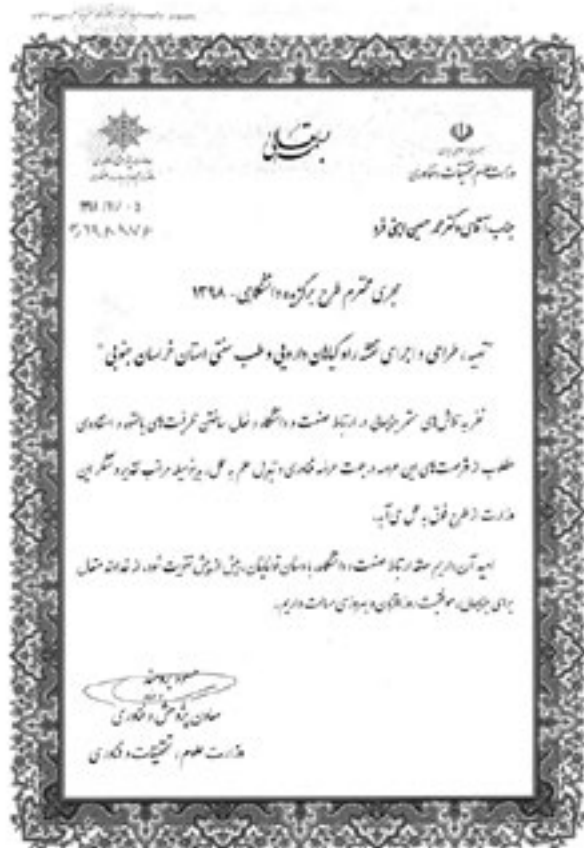 بسمه تعالی
وزارت علوم، تحقیقات و فناوری
جناب آقای دکتر محمد حسین امینی فرد
مجری محترم طرح برگزیده دانشگاهی - ۱۳۹۸
"تهیه، طراحی و اجرای نقشه راه گیاهان دارویی و طب سنتی استان خراسان جنوبی"
نظر به تلاش‌های مستمر جنابعالی در ارتباط صنعت و دانشگاه و فعال ساختن ظرفیت‌های بالقوه و استفاده‌ی
مطلوب از فرصت‌های این عرصه در جهت عرضه فناوری و تبدیل علم به عمل، بدینوسیله مراتب تقدیر و تشکر این
وزارت از طرح فوق به عمل می‌آید.
امید آن داریم حلقه ارتباط صنعت و دانشگاه، با دستان توانایتان، بیش از پیش تقویت شود. از خداوند متعال
برای جنابعالی، موفقیت روزافزون و بهروزی مسالت داریم.
مسعود برومند
معاون پژوهش و فناوری
وزارت علوم، تحقیقات و فناوری